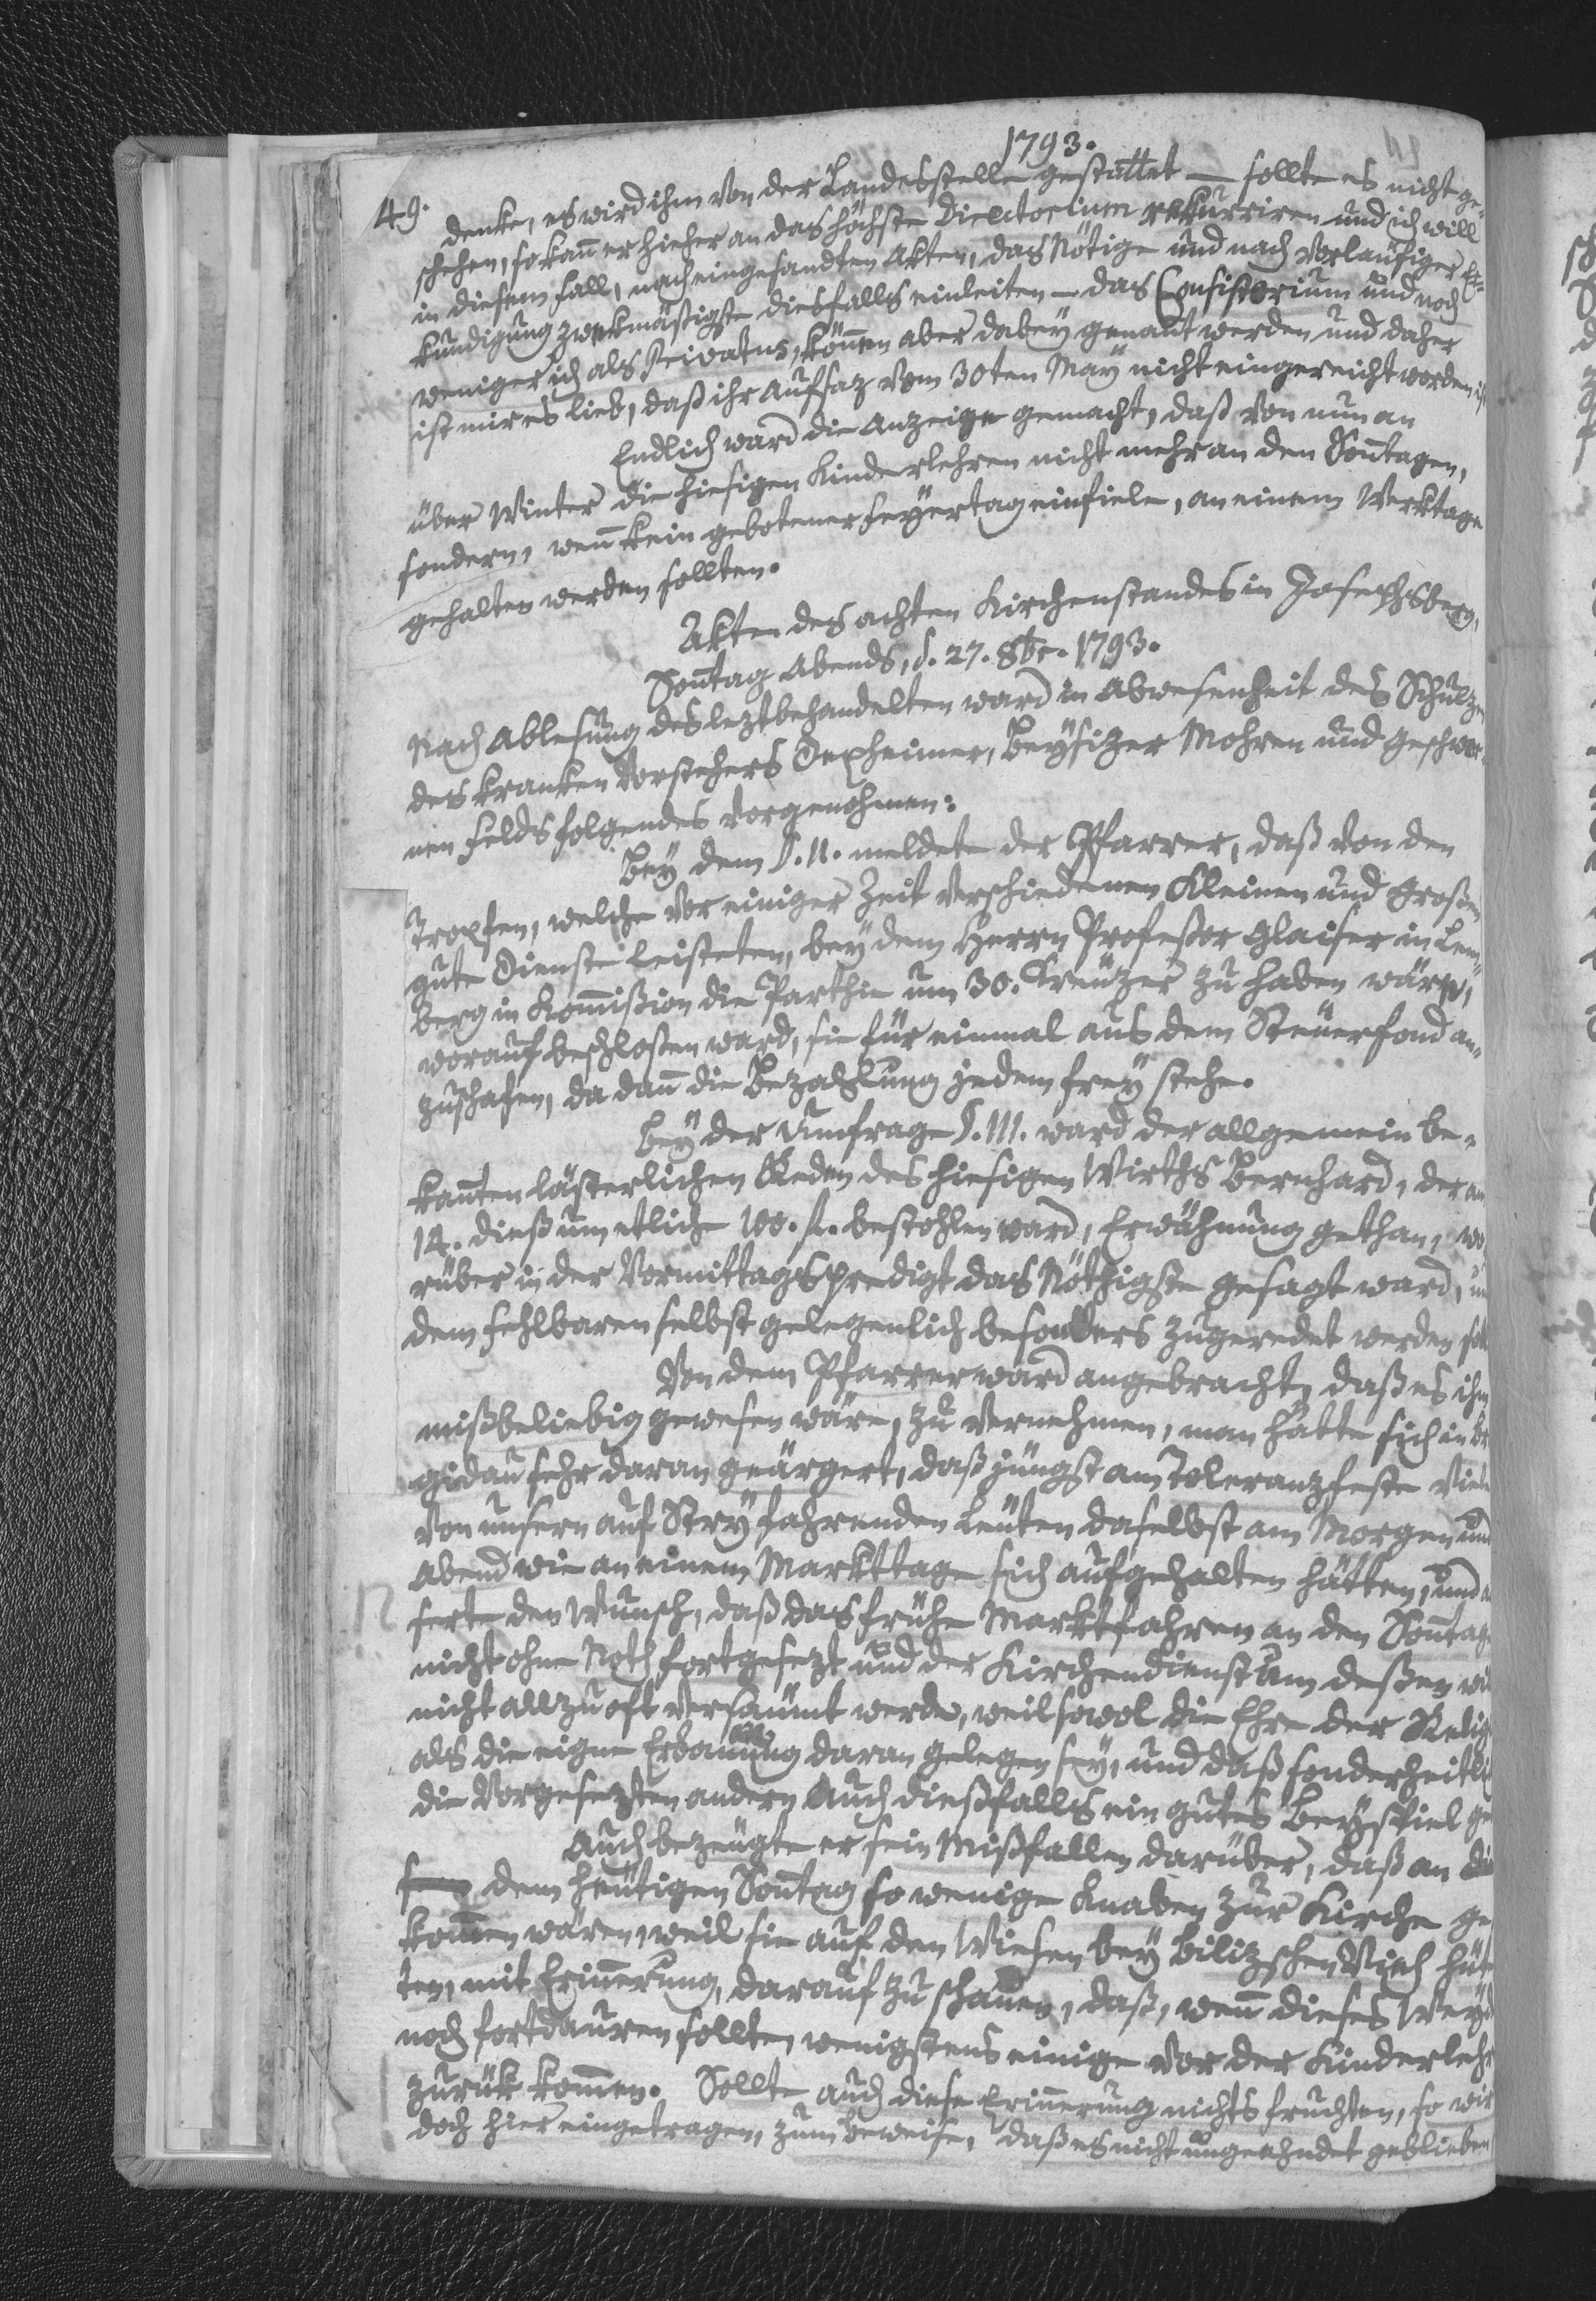 1793.
49.
denke, es wird ihm von der Landesstelle gestattet — sollte es nicht ge-
schehen, so kann er hieher an das höchste Directorium rekurriren und ich will
in diesem Fall, nach eingesandten Akten, das Nötige und nach vorläufiger Er-
kundigung zwekmäßigste diesfalls einleiten — das Consistorium und noch
weniger ich als Privatus, können aber dabey genant werden und daher
ist mir es lieb, daß ihr Aufsaz vom 30ten May nicht eingereicht worden ist
Endlich ward die Anzeige gemacht, daß von nun an
über Winter die hiesigen Kinderlehren nicht mehr an den Sontagen,
sondern, wenn kein gebotener Feyertag einfiele, an einem Werktage
gehalten werden sollten.
Akten des achten Kirchenstandes in Josephsberg,
Sontag Abends, d. 27. 8br. 1793.
Nach Ablesung des leztbehandelten ward in Abwesenheit des Schulzen
des kranken Vorstehers Dexheimer, Beysitzer Mohren und Geschwor-
nen Felds folgendes vorgenohmen:
Bey dem §. II. meldete der Pfarrer, daß von den
Tropfen, welche vor einiger Zeit verschiedenen Kleinen und Großen
gute Dienste leisteten, bey dem Herrn Professor Glaiser in Lem-
berg in Komission die Parthie um 30. Kreuzer zu haben wäre,
worauf beschlossen ward, sie für einmal aus dem Steuerfond an-
zuschafen, da dann die Bezahlung jedem frey stehe.
Bey der Umfrage §. III. ward der allgemein be-
kanten lästerlichen Reden des hiesigen Wirths Bernhard, der am
14. dieß um etliche 100. fl. bestohlen ward, Erwähnung gethan, wo-
rüber in der Vormittagspredigt das Nöthigste gesagt ward, un
dem Fehlbaren selbst gelegenlich besonders zugeredet werden soll
Von dem Pfarrer ward angebracht, daß es ihm
mißbeliebig gewesen wäre, zu vernehmen, man hätte sich in Br
gidau sehr daran geärgert, daß jüngst am Toleranzfeste viele
von unsern auf Stry fahrenden Leuten daselbst am Morgen und
Abend wie an einem Markttage sich aufgehalten hätten, und
serte den Wunsch, daß das frühe Marktfahren an den Sontag
nicht ohne Noth fortgesezt und der Kirchendienst um dessen wil
nicht allzuoft versäumt werde, weil sowol die Ehre der Relig
als die eigne Erbauung daran gelegen sey, und daß sonderheitli
die Vorgesezten andern auch dießfalls ein gutes Beyspiel ge
Auch bezeugte er sein Mißfallen darüber, daß an
dem heutigen Sontag so wenige Knaben zur Kirche ge
kommen wären, weil sie auf den Wiesen bey Bilizschen Vieh hüte
ten, mit Erinnerung, darauf zu schauen, daß, wenn dieses Weyd
noch fortdauren sollten, wenigstens einige vor der Kinderlehr
zurük kommen. Sollte auch diese Erinnerung nichts fruchten, so wir
doch hier eingetragen, zum Beweise, daß es nicht ungeahndet geblieben